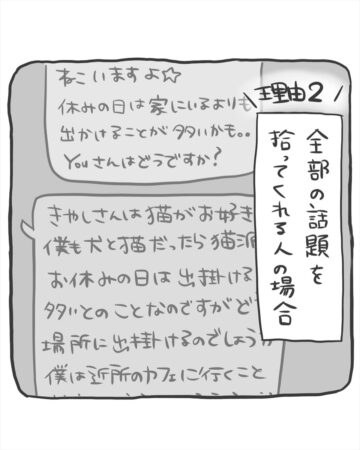 理由2
全部の話題を
拾ってくれる人の場合
ねこいますよ☆
休みの日は家にいるよりも
出かけることが多いかも。。
Youさんはどうですか?
きやしさんは猫がお好き
僕も犬と猫だったら猫派
お休みの日は出掛ける
多いとのことなのですがど
場所に出掛けるのでしょうか
僕は近所のカフェに行くこと